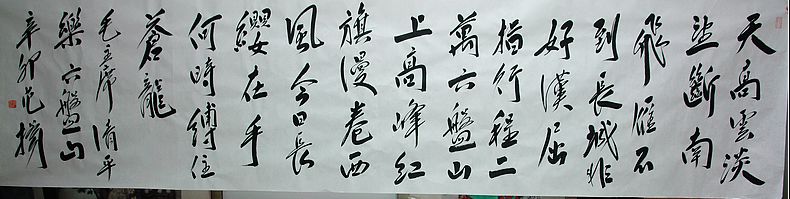 天高雲淡
望斷南
飛雁不
到長城非
好漢屈
指行程二
萬六盤山
上高峰紅
旗漫卷西
風今日長
纓在手
何時縛住
蒼龍
毛主席清平
樂六盤山
辛卯